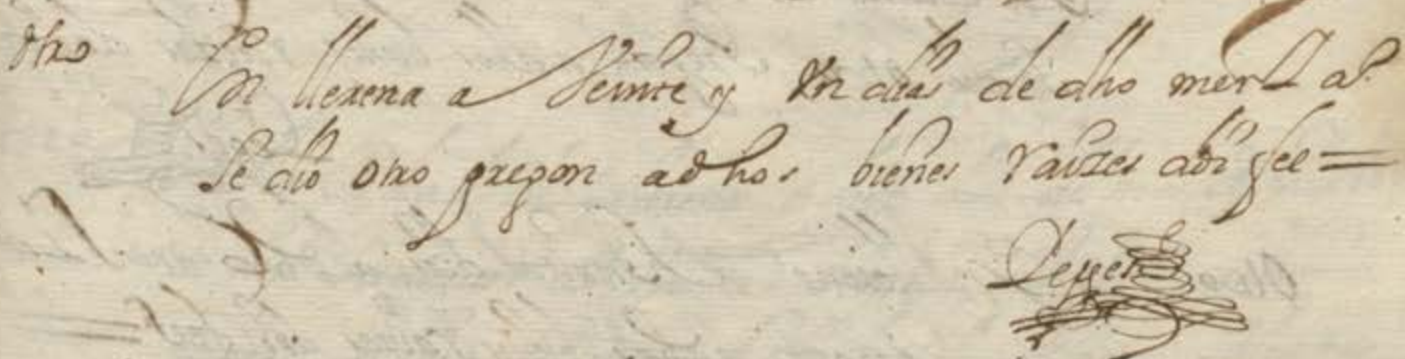 otro En llerena a Veinte y Un dias de dho mes y a.º
Se dio otro pregon a dhos bienes raizes doi fee =
Reyes